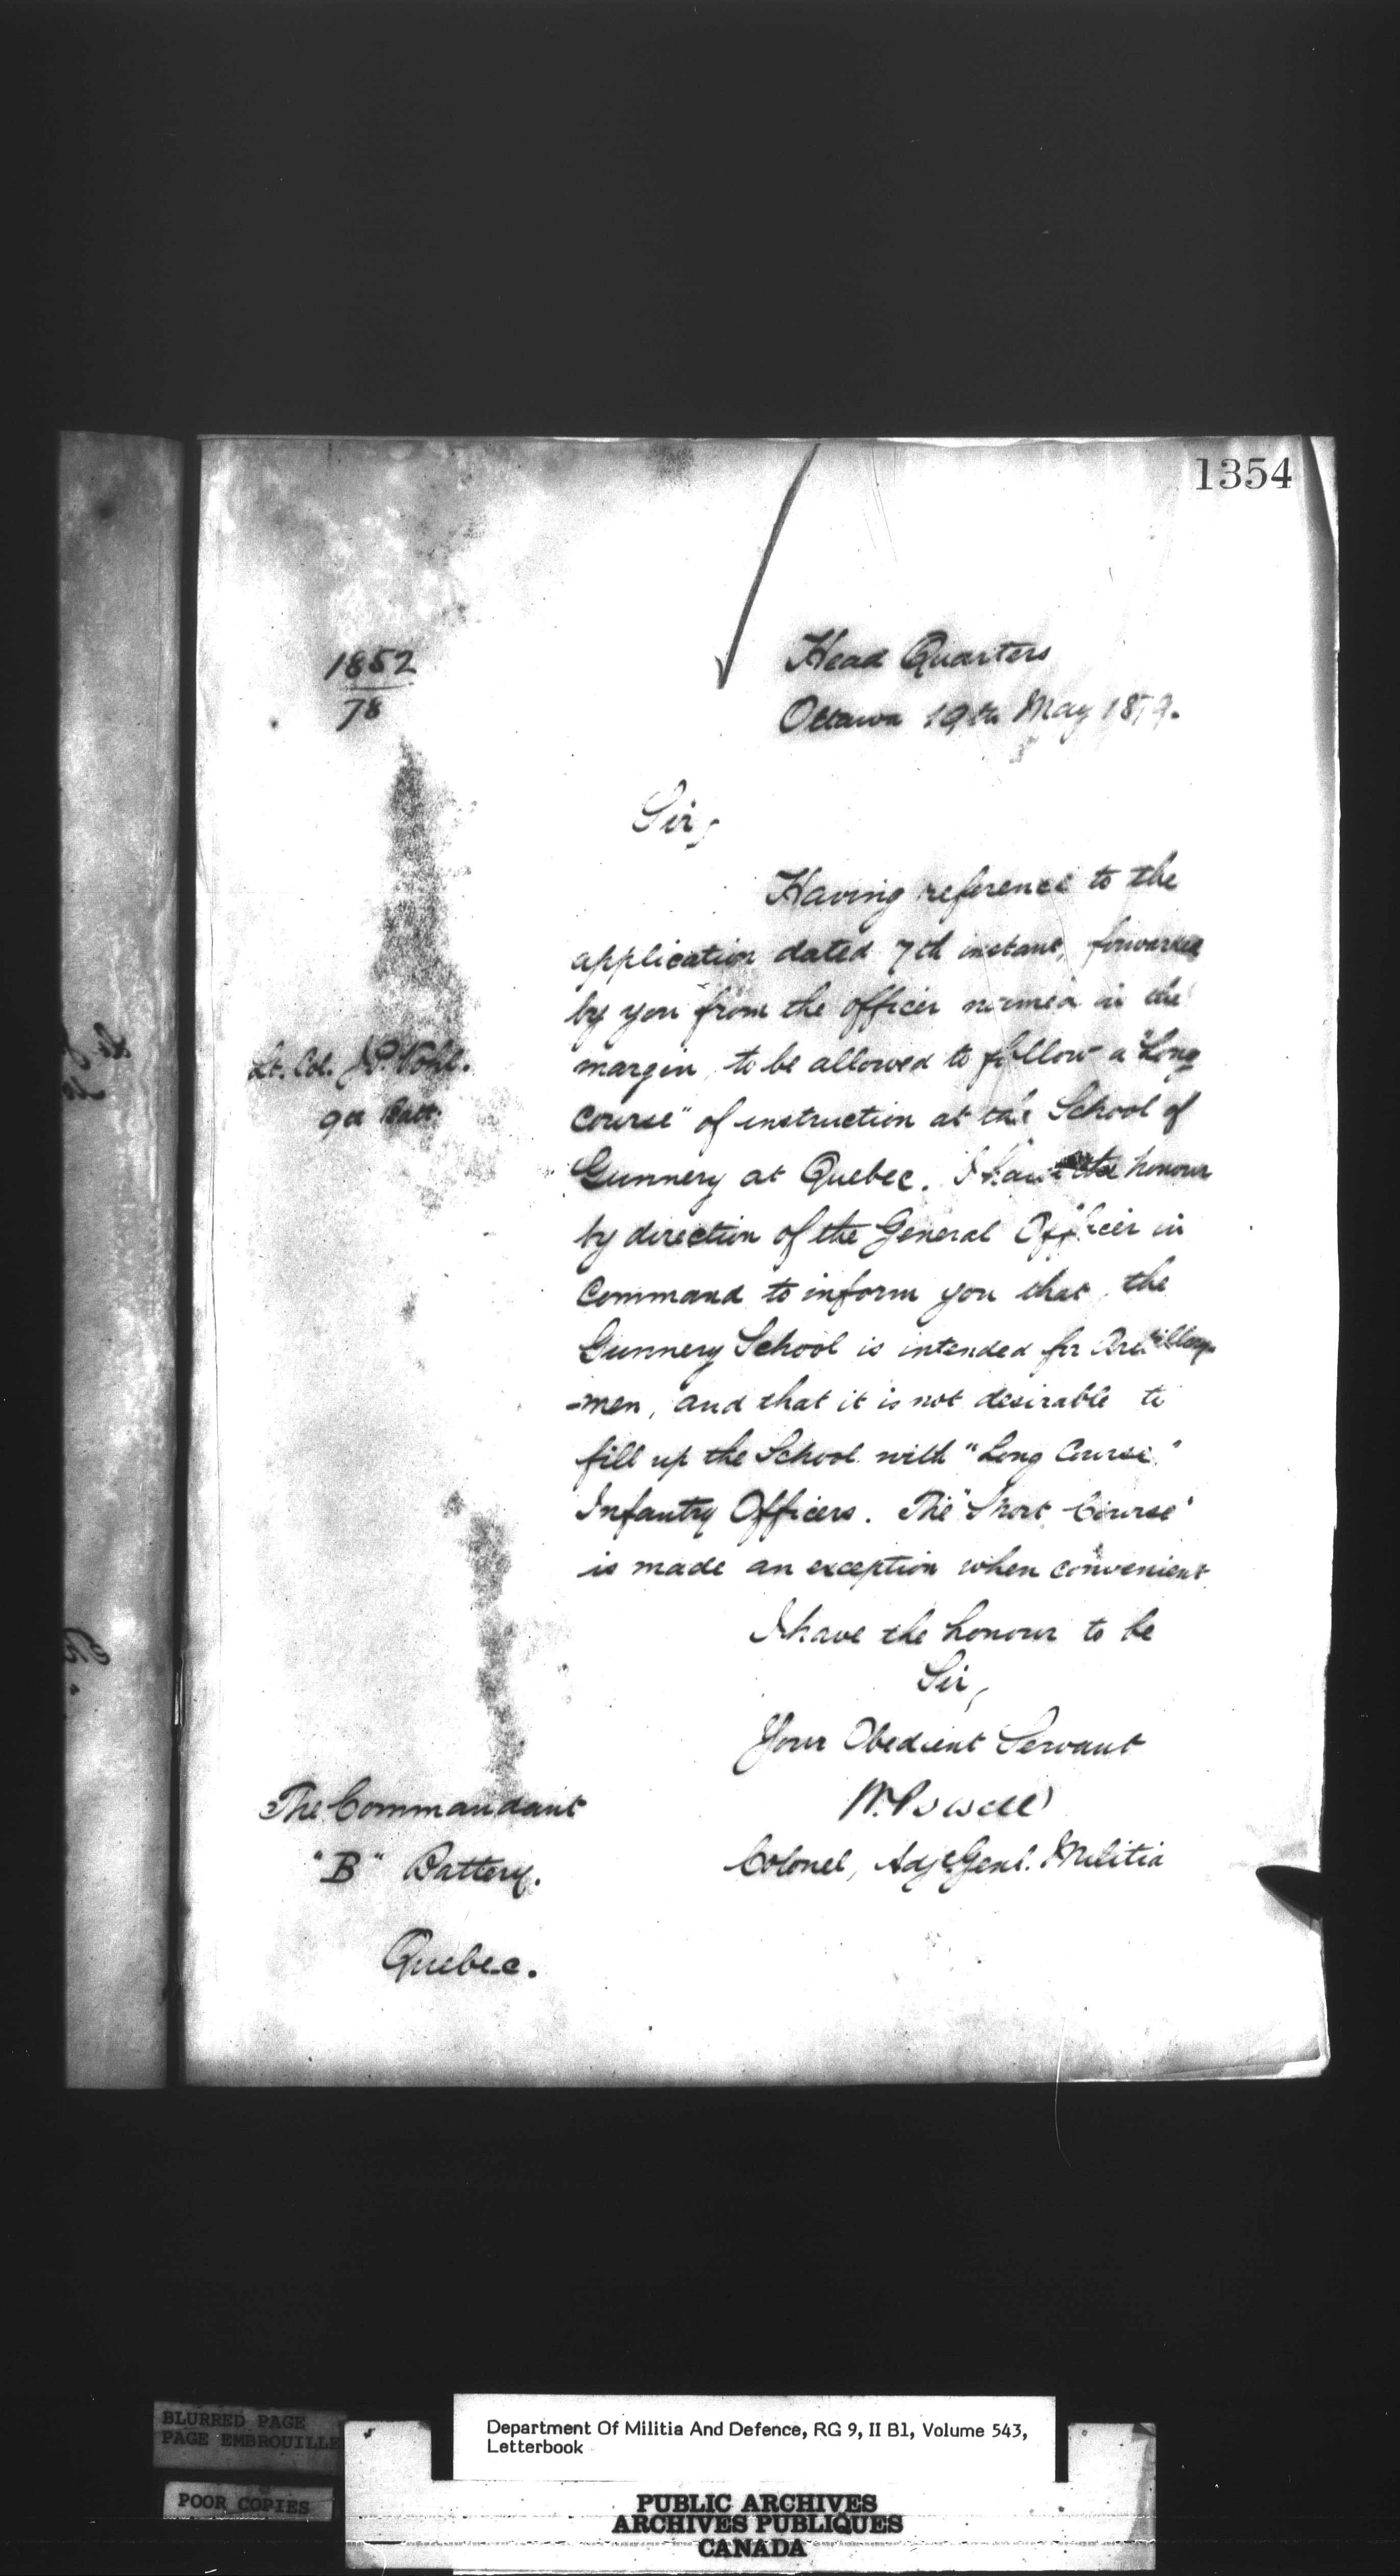 1354
1852
78
Head Quarters
Ottawa 19th May 1879.
Sir,
Having reference to the
application dated 7th instant, forwarded
by you from the officer named in the
margin, to be allowed to follow a "Long
Lt. Col. J.P. Vohl.
9th Batt.
Course" of instruction at the School of
Gunnery at Quebec. I have the honour
by direction of the General Officer in
Command to inform you that, the
Gunnery School is intended for Artillery-
-men, and that it is not desirable to
fill up the School with "Long Course"
Infantry Officers. The "Short Course"
is made an exception when convenient.
I have the honour to be
Sir,
Your Obedient Servant
W. Powell
Colonel, Adjt. Genl. Militia
The Commandant
"B" Battery.
Quebec.
BLURRED PAGE
PAGE EMBROUILLE
POOR COPIES
Department Of Militia And Defence, RG 9, II B1, Volume 543,
Letterbook
PUBLIC ARCHIVES
ARCHIVES PUBLIQUES
CANADA